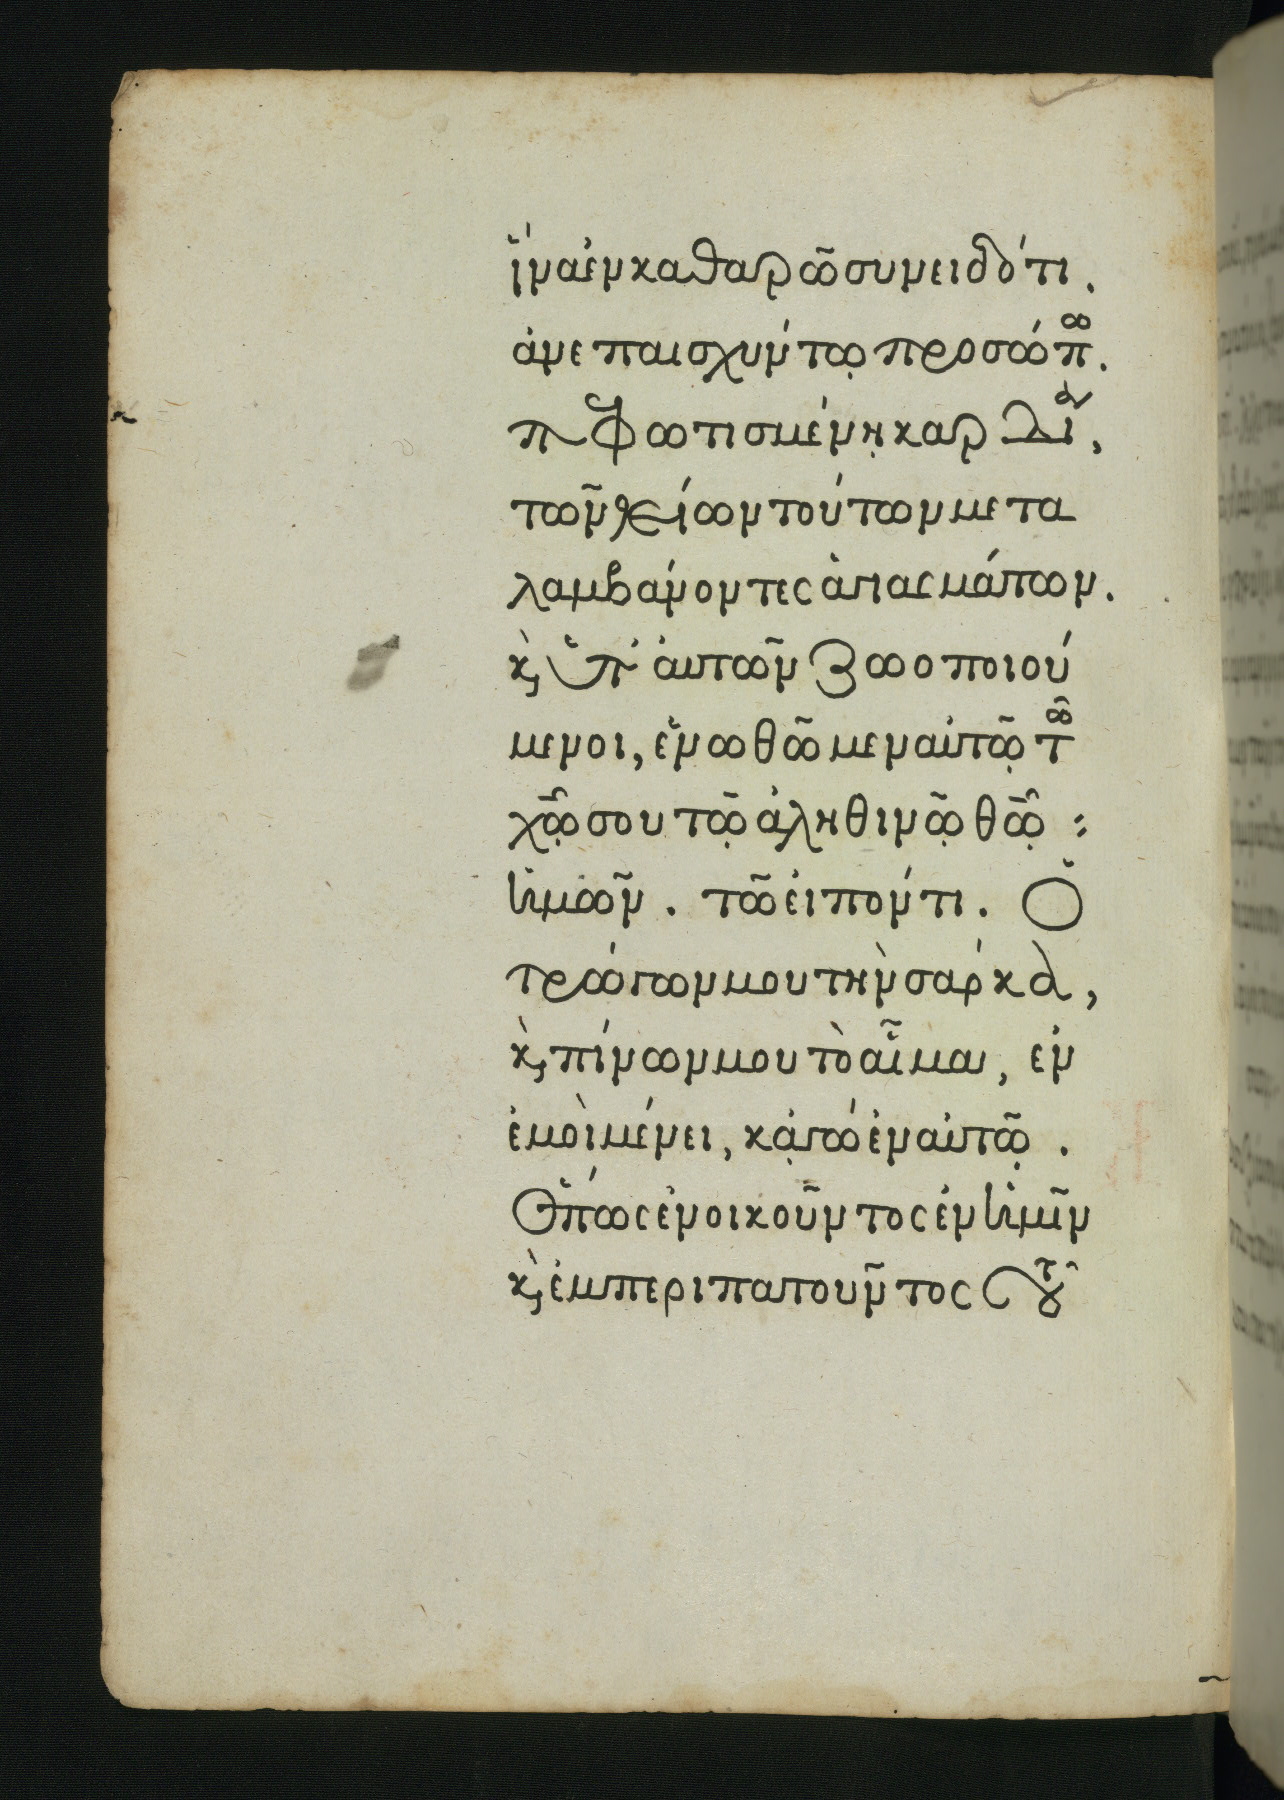 ἵνα ἐν καθαρῶ συνειδότι.
ἀνεπαισχύντῳ προσώπω.
πεφωτισμένῃ καρδία,
τῶν θείων τούτων μετα
λαμβάνοντες ἁγιασμάτων.
κ, ὑπ' αὐτῶν ζωοποιού
μενοι, ἑνωθῶμεν αὐτῷ τῶ
χῷ σου τῷ ἀληθινῷ θῷ :
ἡμῶν. τῶ εἰπόντι. Ὁ
τρώγων μου τὴν σάρκα,
κ, πίνων μου τὸ αἷμα, ἐν
ἐμοὶ μένει, κᾀγὼ ἐν αὐτῷ.
Ὅπως ἐνοικοῦντος ἐν ἡμῖν
κ, ἐμπεριπατοῦντος τοῦ